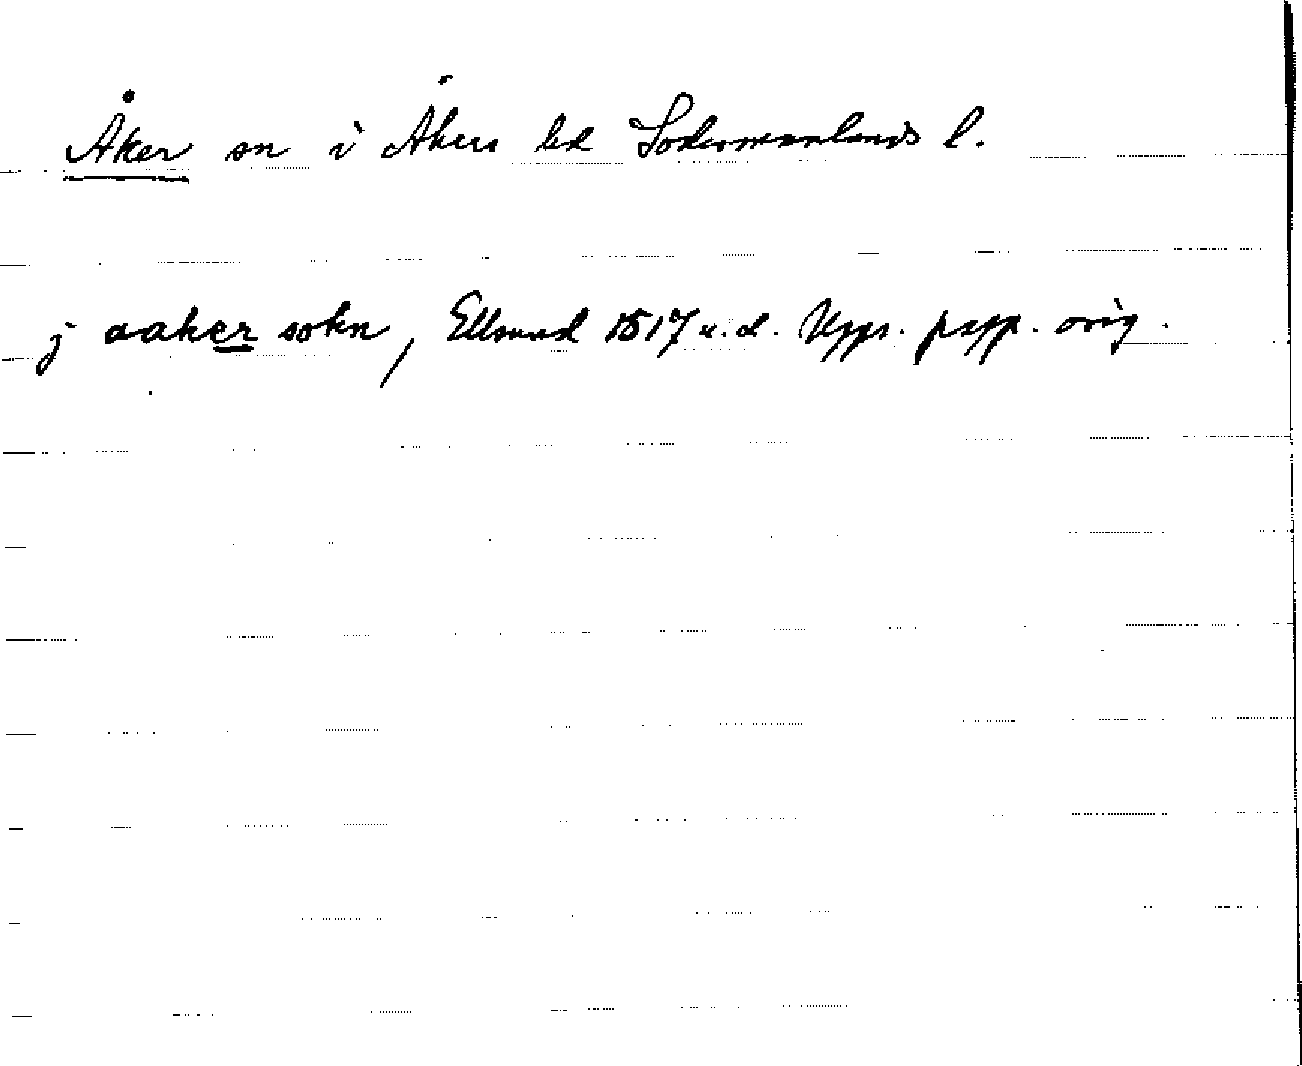 Åker sn i Åkers hd Södermanlands l.
j aaker sokn, Ellsund 1517 u.d. Upps. papp. orig.